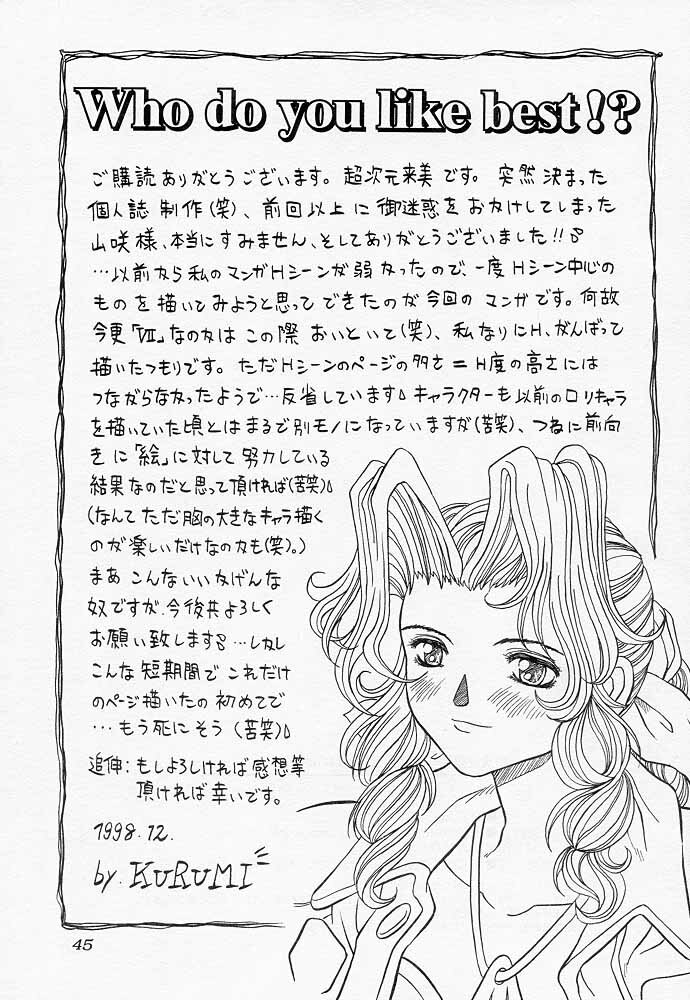 Who do you like best!?
ご購読ありがとうございます。超次元来美です。突然決まった
個人誌制作(笑)、前回以上に御迷惑をおかけしてしまった
山咲様、本当にすみません、そしてありがとうございました!!
…以前から私のマンガHシーンが弱かったので、一度Hシーン中心の
ものを描いてみようと思ってできたのが今回のマンガです。何故
今更「Ⅶ」なのかはこの際おいといて(笑)、私なりにH、がんばって
描いたつもりです。ただHシーンのページの多さ=H度の高さには
つながらなかったようで…反省しています。キャラクターも以前のロリキャラ
を描いていた頃とはまるで別モノになっていますが(苦笑)、つねに前向
きに「絵」に対して努力している
結果なのだと思って頂ければ(苦笑)。
(なんてただ胸の大きなキャラ描く
のが楽しいだけなのかも(笑)。)
まあこんないいかげんな
奴ですが、今後共よろしく
お願い致します。…しかし
こんな短期間でこれだけ
のページ描いたの初めてで
…もう死にそう(苦笑)。
追伸:もしよろしければ感想等
頂ければ幸いです。
1998.12.
by. KURUMI
45